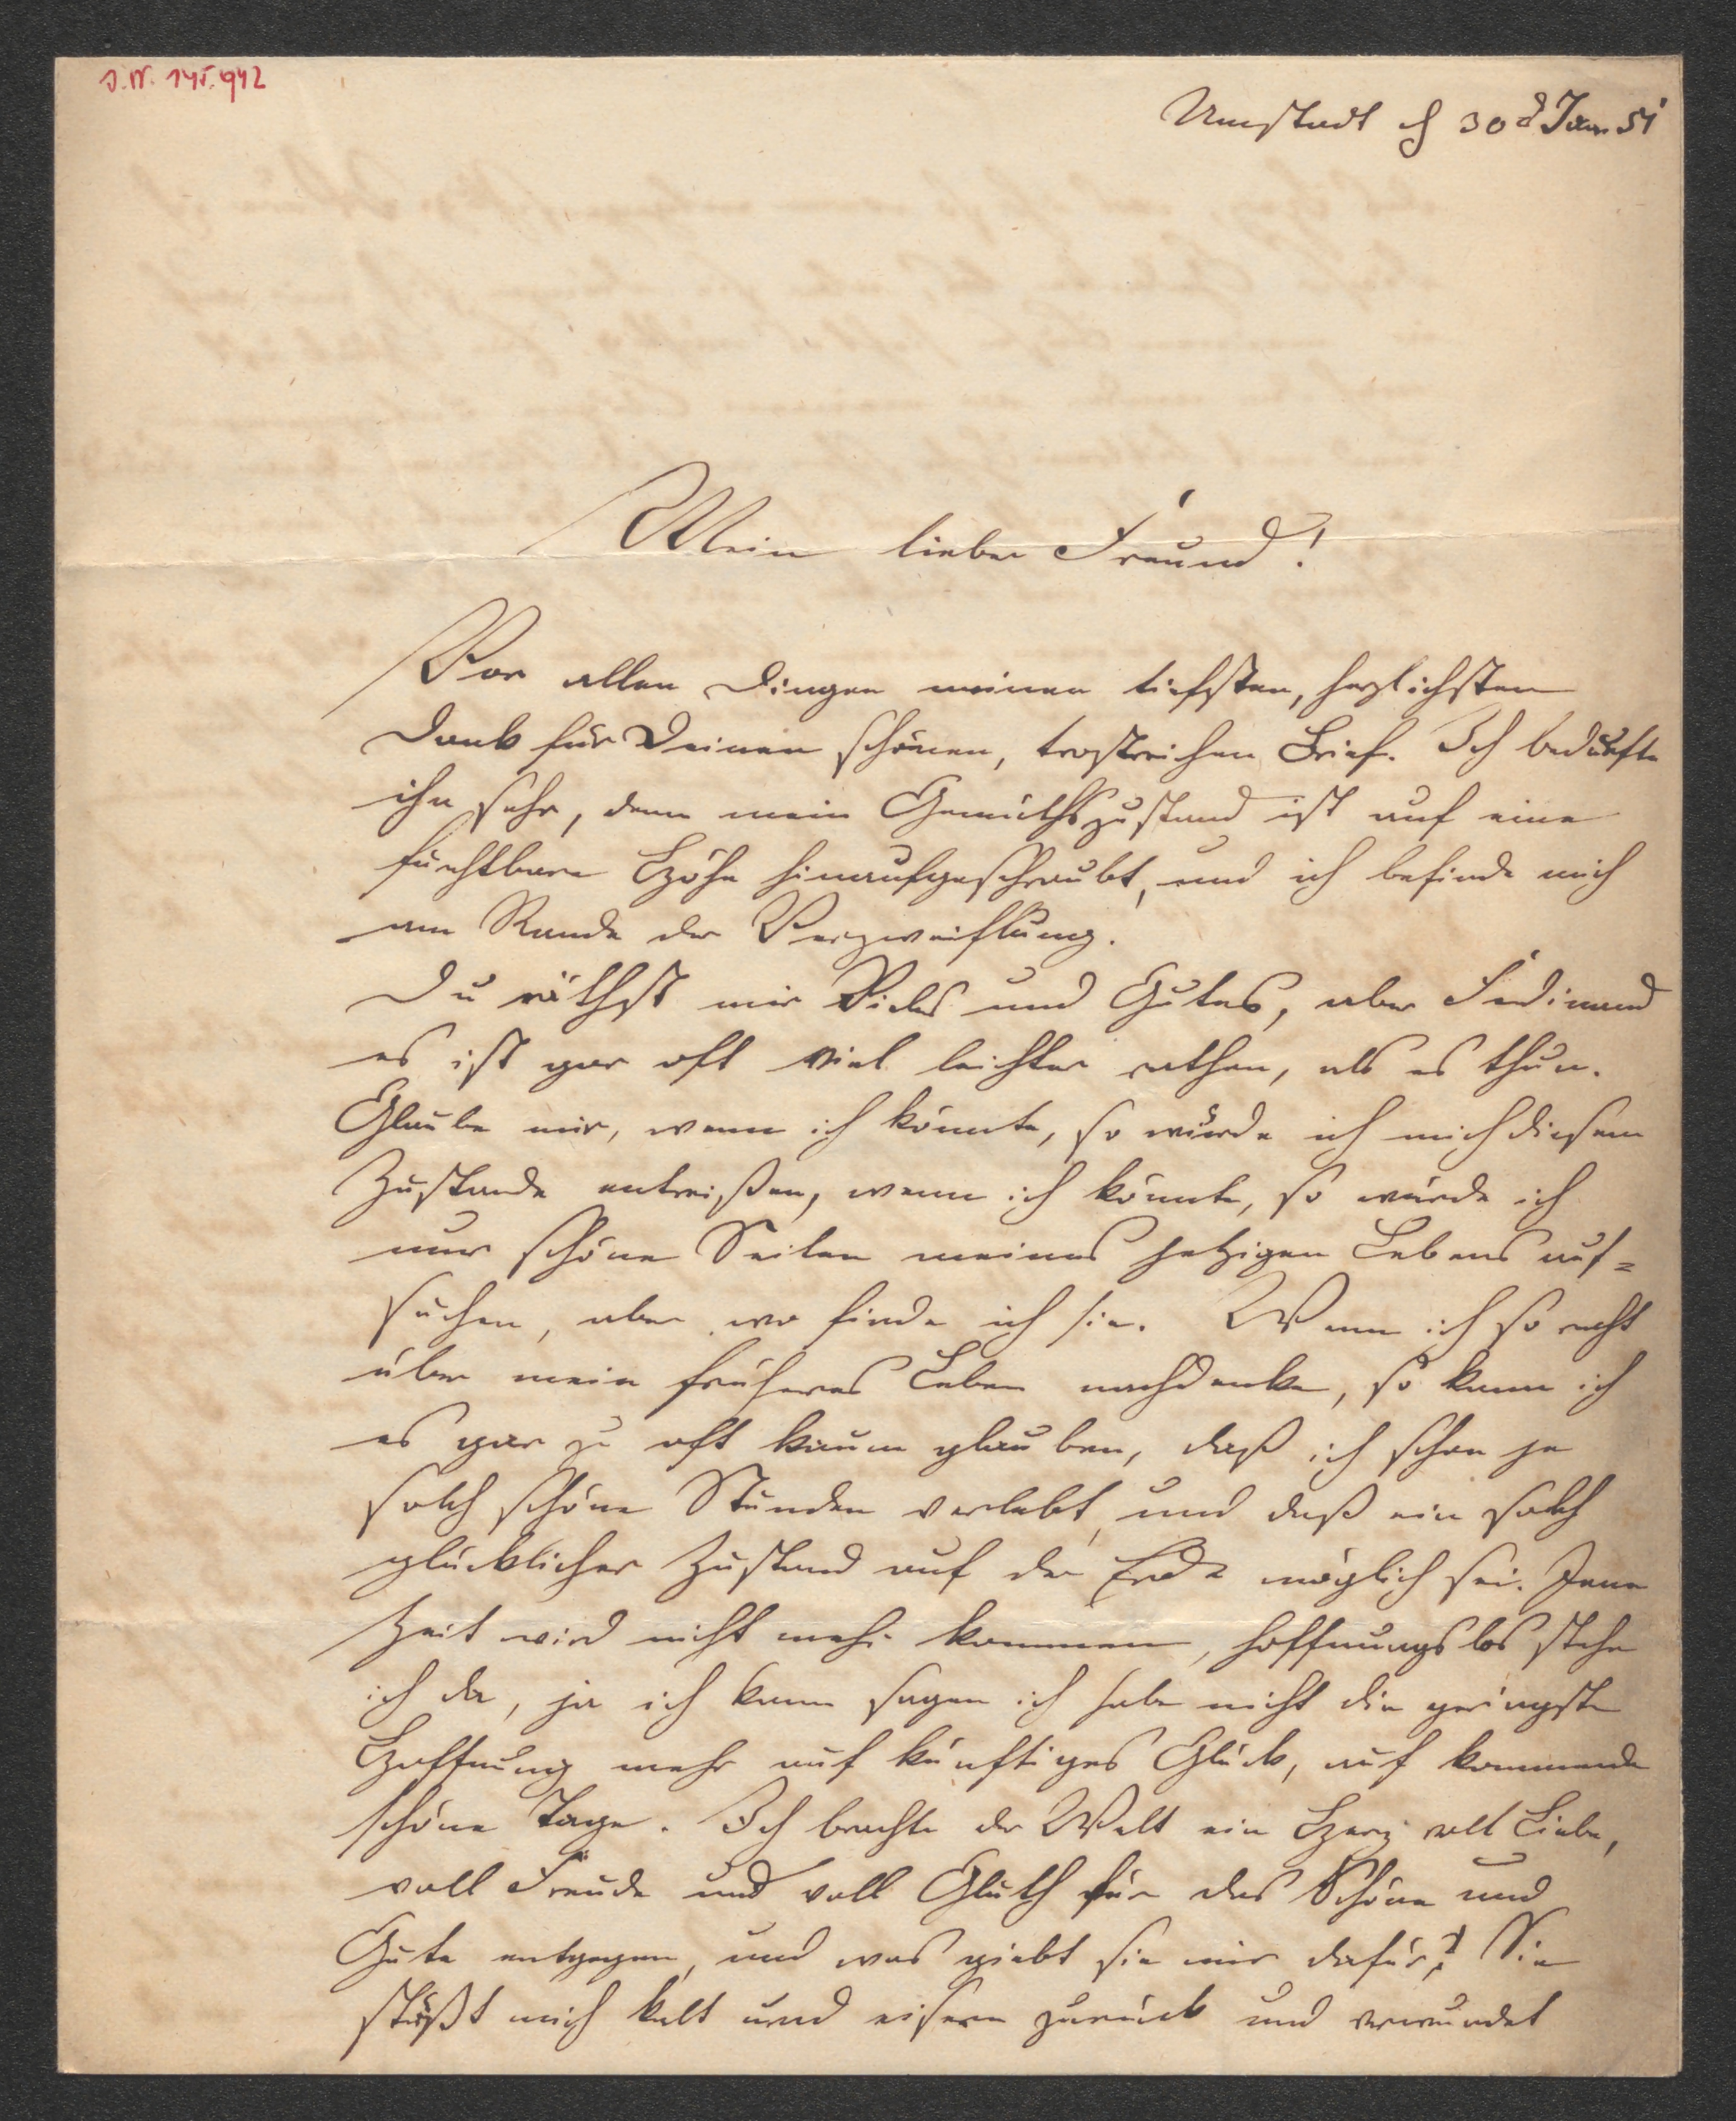 J.N. 145.942
Umstadt d 30t Jan 51
Mein lieber Freund!
Vor allen Dingen meinen tiefsten, herzlichsten
Dank für Deinen schönen, trostreichen Brief. Ich bedurfte
ihn sehr, denn mein Gemüthszustand ist auf eine
furchtbare Höhe hinaufgeschraubt, und ich befinde mich
am Rande der Verzweiflung.
Du räthst mir Vieles und Gutes, aber Ferdinand
es ist gar oft viel leichter rathen, als es thun.
Glaube mir, wenn ich könnte, so würde ich mich diesem
Zustande entreißen, wenn ich könnte, so würde ich
nur schöne Seiten meines jetzigen Lebens auf=
suchen, aber wo finde ich sie. Wenn ich so recht
über mein früheres Leben nachdenke, so kann ich
es gar zu oft kaum glauben, daß ich schon je
solch schöne Stunden verlebt, und daß ein solch
glücklicher Zustand auf der Erde möglich sei. Jene
Zeit wird nicht mehr kommen, hoffnungslos stehe
ich da, ja ich kann sagen ich habe nicht die geringste
Hoffnung mehr auf künftiges Glück, auf kommende
schöne Tage. Ich brachte der Welt ein Herz voll Liebe,
voll Freude und voll Gluth für das Schöne und
Gute entgegen, und was giebt sie mir dafür? Sie
stößt mich kalt und eisern zurück und verwundet